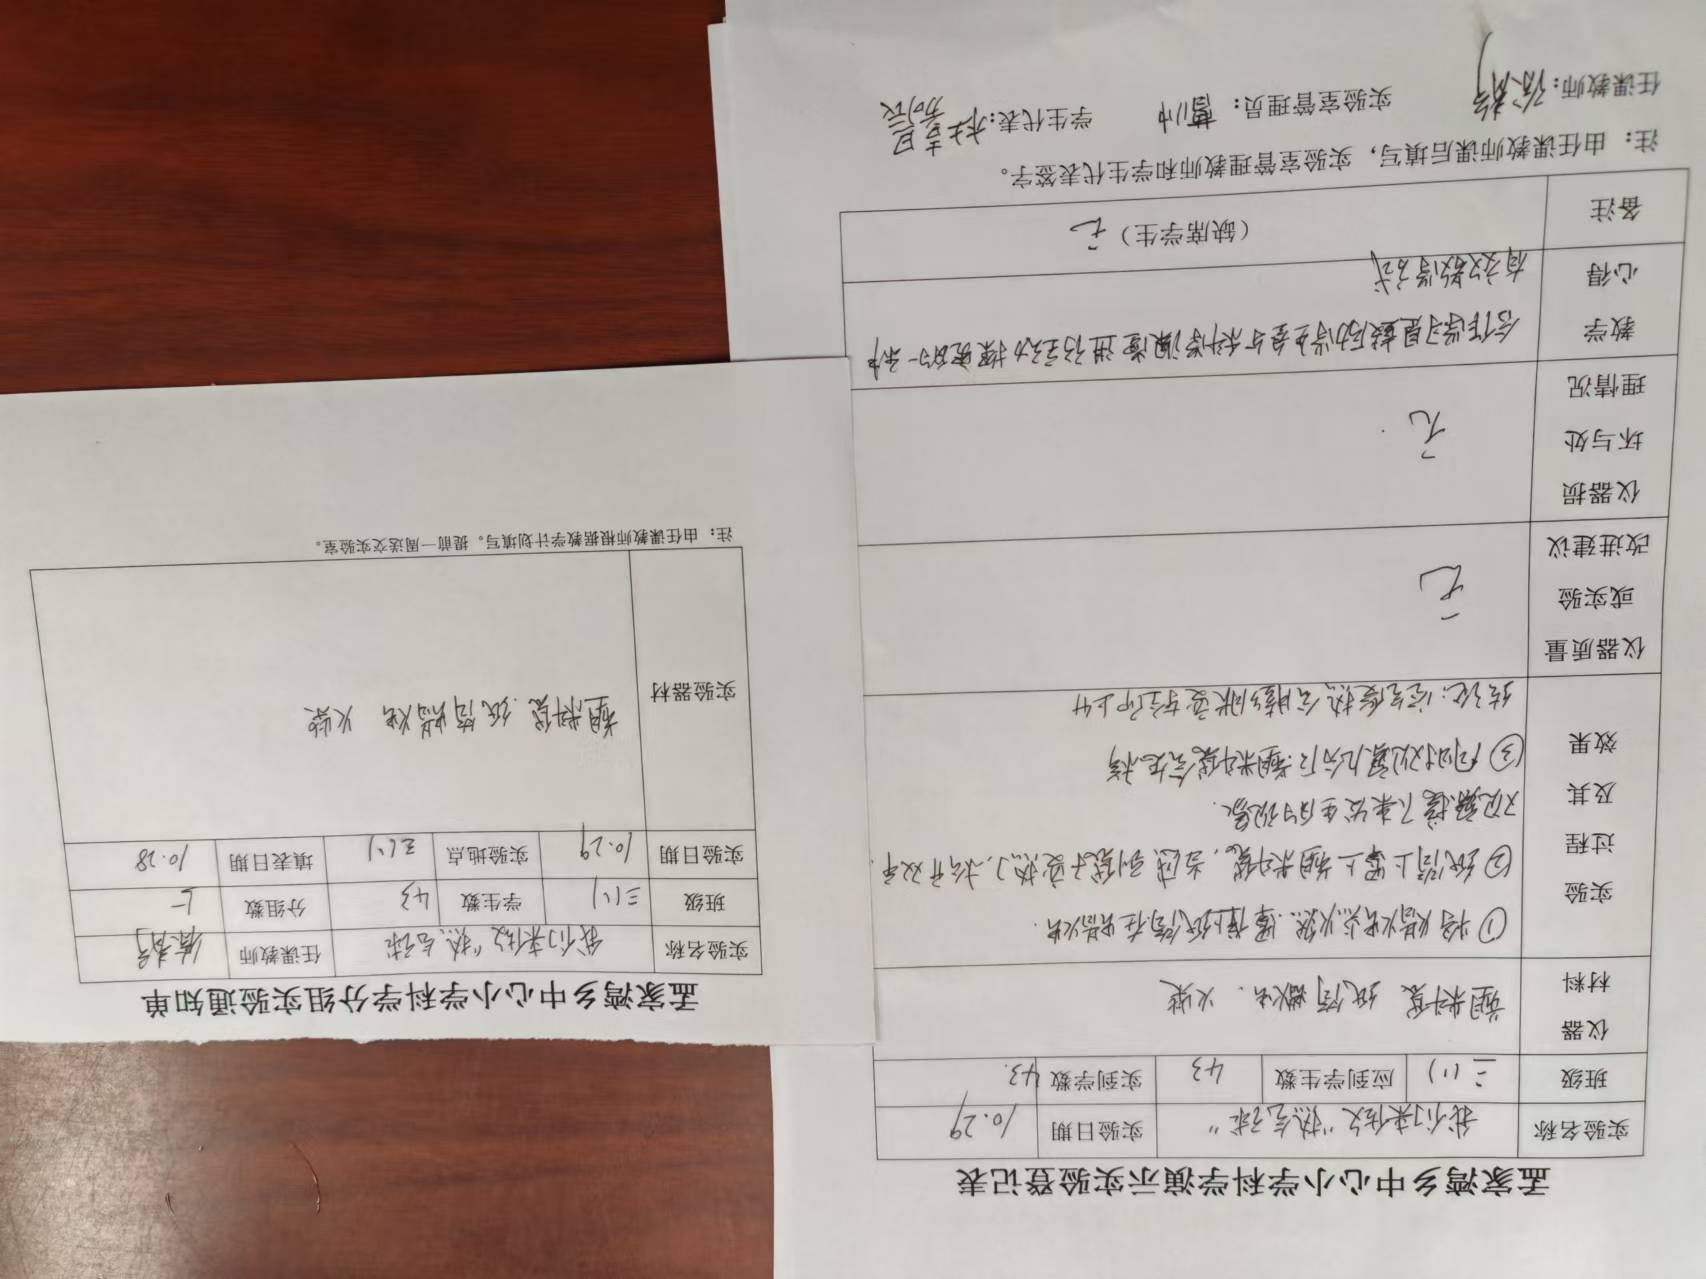 孟家湾乡中心小学科学演示实验登记表
实验名称 我们来做"热气球" 实验日期 10.29
班级 三(1) 应到学生数 43 实到学数 43.
仪器
材料
塑料袋 纸筒 蜡烛、火柴
实验
过程
及其
效果
①将蜡烛点火燃, 罩住纸筒在蜡烛.
②纸筒上罩上塑料袋, 当感到袋子变热), 松开双手,
观察接下来发生的现象.
③同时放置几分后塑料袋会怎样
结论:空气受热会膨胀变轻即上升
仪器质量
或实验
改进建议
无
仪器损
坏与处
理情况
无
教学
心得
合作学习是鼓励学生参与科学课堂进行主动探究的一种
有效教学方式
备注 (缺席学生) 无
注: 由任课教师课后填写, 实验室管理教师和学生代表签字。
任课教师: 实验室管理员: 学生代表:
孟家湾乡中心小学科学分组实验通知单
实验名称 我们来做"热气球 任课教师
班级 三(1) 学生数 43 分组数
实验日期 10.29 实验地点 三(1) 填表日期 10.28
实验器材 塑料袋. 纸筒 蜡烛 火柴
注: 由任课教师根据教学计划填写。提前一周送交实验室。